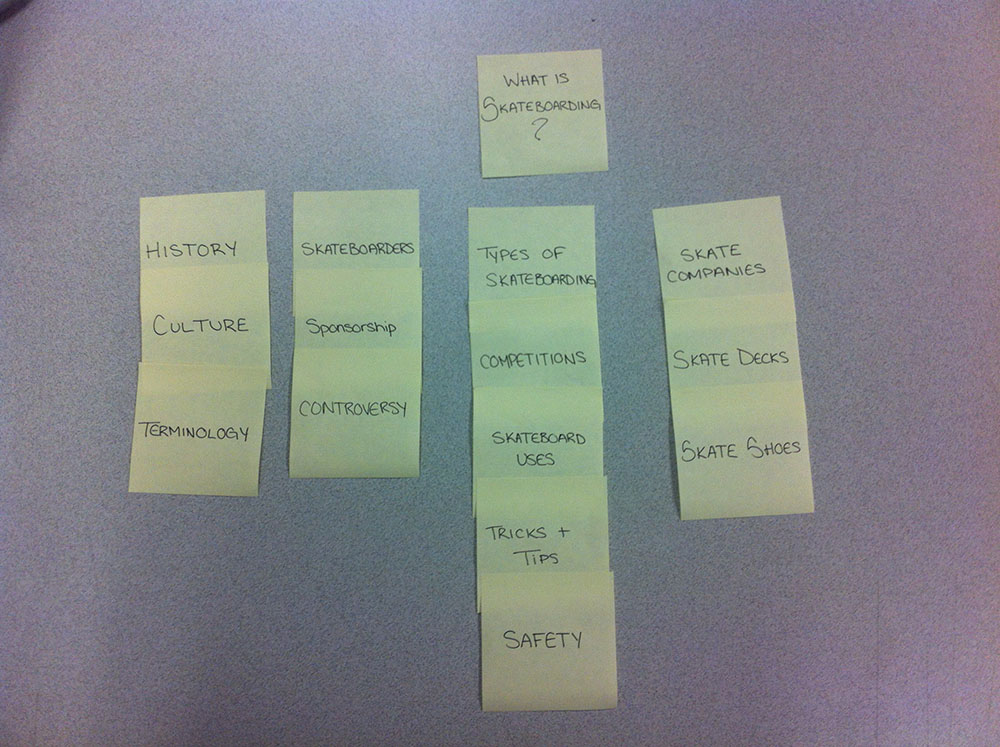 WHAT IS
SKATEBOARDING
?
HISTORY
CULTURE
TERMINOLOGY
SKATEBOARDERS
Sponsorship
CONTROVERSY
TYPES OF
SKATEBOARDING
COMPETITIONS
SKATEBOARD
USES
TRICKS +
TIPS
SAFETY
SKATE
COMPANIES
SKATE DECKS
SKATE SHOES